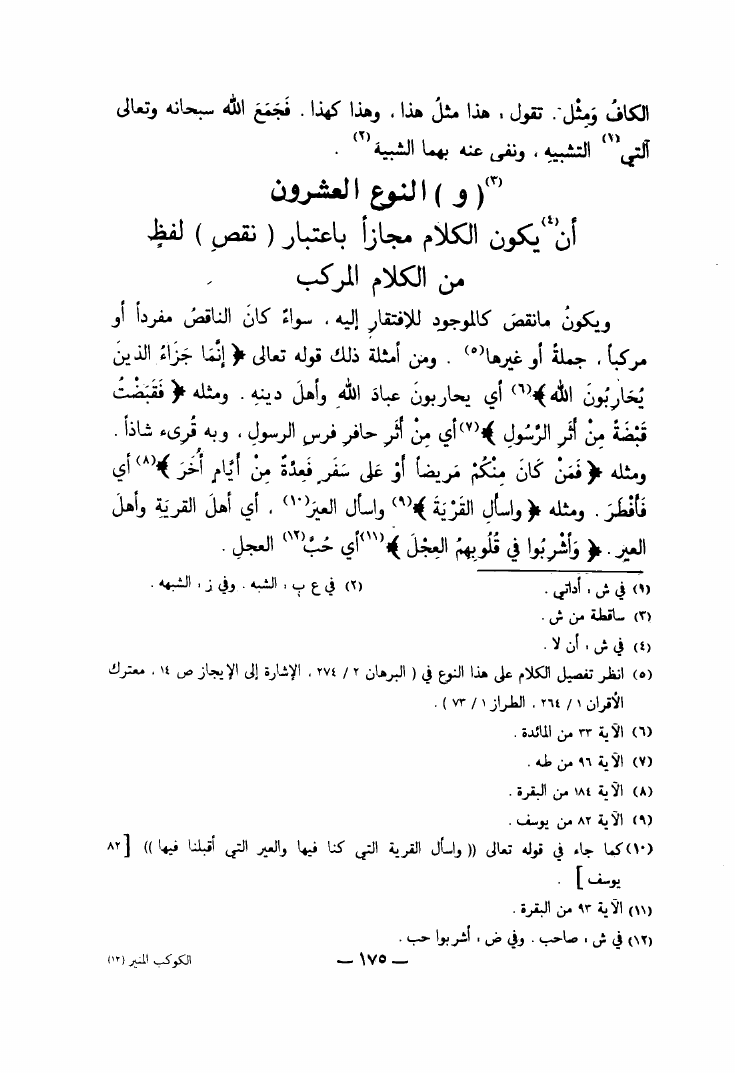 الكافُ وَمِثْل. تقول : هذا مثلُ هذا ، وهذا كهذا . فَجَمَعَ الله سبحانه وتعالى
آلتي(١) التشبيهِ ، ونفى عنه بهما الشبيهَ(٢) .
(٣)( و ) النوع العشرون
أن(٤) يكون الكلام مجازاً باعتبار ( نقصِ ) لفظٍ
من الكلام المركب
ويكونُ مانقصَ كالموجودِ للافتقارِ إليه ، سواءٌ كانَ الناقصُ مفرداً أو
مركباً ، جملةً أو غيرها(٥) . ومن أمثلة ذلك قوله تعالى ﴿ إِنَّمَا جَزَاءُ الذينَ
يُحَارِبُونَ الله ﴾(٦) أي يحاربونَ عبادَ اللهِ وأهلَ دينهِ . ومثله ﴿ فَقَبَضْتُ
قَبْضَةً مِنْ أَثَرِ الرَّسُولِ ﴾(٧) أي مِنْ أَثَرِ حافرِ فرسِ الرسولِ ، وبه قُرِىء شاذاً .
ومثله ﴿ فَمَنْ كَانَ مِنْكُمْ مَريضاً أوْ عَلى سَفَرٍ فَعِدَّةٌ مِنْ أيَّامٍ أُخَرَ ﴾(٨) أي
فَأَفْطَرَ . ومثله ﴿ واسألِ القَرْيَةَ ﴾(٩) واسأل العيرَ(١٠) ، أي أهلَ القريَة وأهلَ
العير . ﴿ وَأُشْرِبُوا في قُلُوبِهِمُ العِجْلَ ﴾(١١) أي حُبَّ(١٢) العجلِ .
(١) في ش : أداتي . (٢) في ع ب : الشبه . وفي ز : الشبهه .
(٣) ساقطة من ش .
(٤) في ش : أن لا .
(٥) انظر تفصيل الكلام على هذا النوع في ( البرهان ٢ / ٢٧٤ ، الإشارة إلى الإيجاز ص ١٤ ، معترك
الأقران ١ / ٢٦٤ ، الطراز ١ / ٧٣ ) .
(٦) الآية ٣٣ من المائدة .
(٧) الآية ٩٦ من طه .
(٨) الآية ١٨٤ من البقرة .
(٩) الآية ٨٢ من يوسف .
(١٠) كما جاء في قوله تعالى (( واسأل القرية التي كنا فيها والعير التي أقبلنا فيها )) [ ٨٢
يوسف ] .
(١١) الآية ٩٣ من البقرة .
(١٢) في ش : صاحب . وفي ض : أشربوا حب .
— ١٧٥ — الكوكب المنير (١٢)